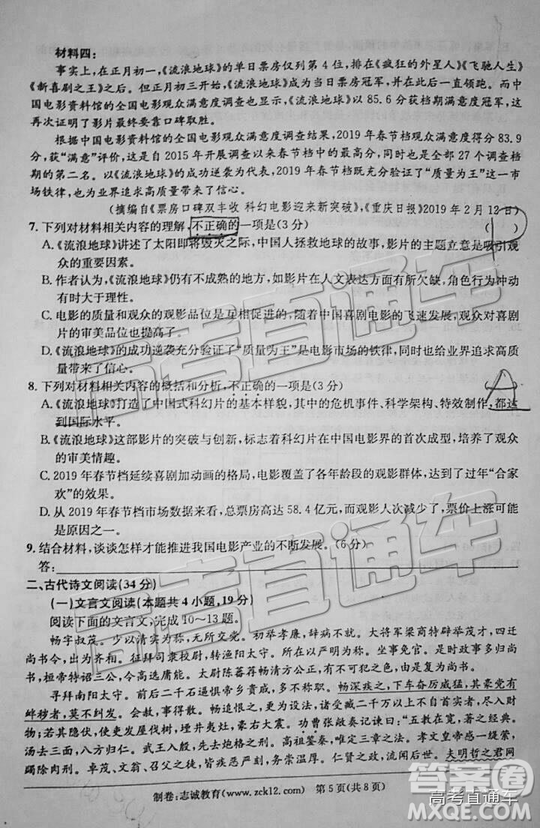 材料四：
事实上，在正月初一，《流浪地球》的单日票房仅列第4位，排在《疯狂的外星人》《飞驰人生》
《新喜剧之王》之后。但正月初三开始，《流浪地球》成为当日票房冠军，并在此后一直领跑。而中
国电影资料馆的全国电影观众满意度调查也显示，《流浪地球》以85.6分获档期满意度冠军，这
再次证明了影片最终要靠口碑取胜。
根据中国电影资料馆的全国电影观众满意度调查结果，2019年春节档观众满意度得分83.9
分，获“满意”评价，这是自2015年开展调查以来春节档中的最高分，同时也是全部27个调查档
期的第二名。以《流浪地球》的成功逆袭为代表，2019年春节档充分验证了“质量为王”这一市
场铁律，也为业界追求高质量发展带来信心。
（摘编自《票房口碑双丰收 科幻电影迎来新突破》，《重庆日报》2019年2月12日）
7. 下列对材料相关内容的理解，不正确的一项是（3分）（ ）
A.《流浪地球》讲述了太阳即将毁灭之际，中国人拯救地球的故事，影片的主题立意是吸引观
众的重要因素。
B. 作者认为，《流浪地球》仍有不成熟的地方，如影片在人文表达方面有所欠缺，角色行为冲
动有时让人无法理解。
C. 电影的质量和观众的观影品位是互相促进的，随着中国喜剧电影的飞速发展，观众对影
片的审美品位也提高了。
D.《流浪地球》的成功逆袭充分验证了“质量为王”是电影市场的铁律，同时也给业界追求高质
量发展带来了信心。
8. 下列对材料相关内容的概括和分析，不正确的一项是（3分）
A.《流浪地球》打造了中国式科幻片的基本样貌，其中的危机事件、科学架构、特效制作，都达
到国际水平。
B.《流浪地球》这部影片的突破与创新，标志着科幻片在中国电影界的首次成型，培养了观众
的审美情趣。
C. 2019年春节档延续喜剧加动画的格局，电影覆盖了各年龄段的观影人员，达到了“合家
欢”的效果。
D. 从2019年春节档市场数据来看，总票房高达58.4亿元，而观影人次却减少了，票价上涨可能
是原因之一。
9. 结合材料，谈谈怎样才能推进我国电影产业的不断发展。（6分）
答：
二、古代诗文阅读（34分）
（一）文言文阅读（本题共4小题，19分）
阅读下面的文言文，完成10～13题。
畅字叔茂。少以清实为称，无所交党。初举孝廉，辞病不就。大将军梁商特辟举茂才，四迁
尚书令，出为齐相。征拜司隶校尉，转渔阳太守。所在以严明为称。坐事免官。是时政事多归尚
书，桓帝特诏三公，令高选庸能。太尉陈蕃荐畅清方公正，有不可犯之色，由是复为尚书。
寻拜南阳太守。前后二千石逼惧帝乡贵戚，多不称职。畅深疾之，下车奋厉威猛，其豪党有
衅秽者，莫不纠发。会赦，事得散。畅追恨之，更为设法，诸受臧二千万以上不自首实者，尽入财
物；若其隐伏，使吏发屋伐树，堙井夷灶，豪右大震。功曹张敞奏记谏曰：“五教在宽，著之经典。
汤去三面，八方归仁。武王入殷，先去炮格之刑。高祖鉴秦，唯定三章之法。孝文皇帝感一缇
萦，蠲除肉刑。卓茂、文翁、召父之徒，皆疾恶严刻，务崇温厚。仁贤之政，流闻后世。夫明哲之君，网
漏吞舟之鱼
制卷：志诚教育（www.zck12.com） 第5页（共8页）
高考直通车
答案圈
MXQE.COM